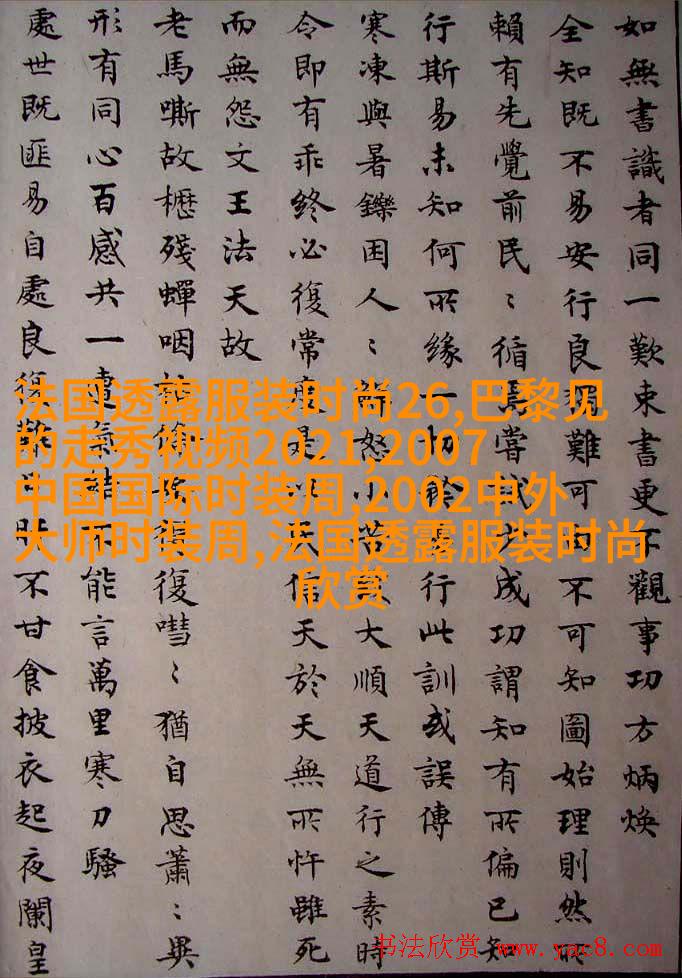 法国透露服装时尚26,巴黎见
的走秀视频2021,2007
中国国际时装周,2002中外
大师时装周,法国透露服装时尚
欣赏
如無書識者同一歎束書更不觀事功方炳煥
全知既不易安行良獨難可不可知圖始理則然所
賴有先覺前民〻循焉嘗試成功謂知有所偏已知
行斯易未知何所緣一切行此訓或誤傳
寒凍與暑鑠困人〻怒小大順天道行之素時
令即有乖終必復常天信天於天無所忤雖死
而無怨文王法天故
老馬嘶故櫪殘蟬咽復嘒〻猶自思蕭〻畢
形有同心百感共一不能言萬里寒刀騷
處世既匪易自處良復難不甘食披衣起夜闌皇
书法欣赏 www.yac8.com